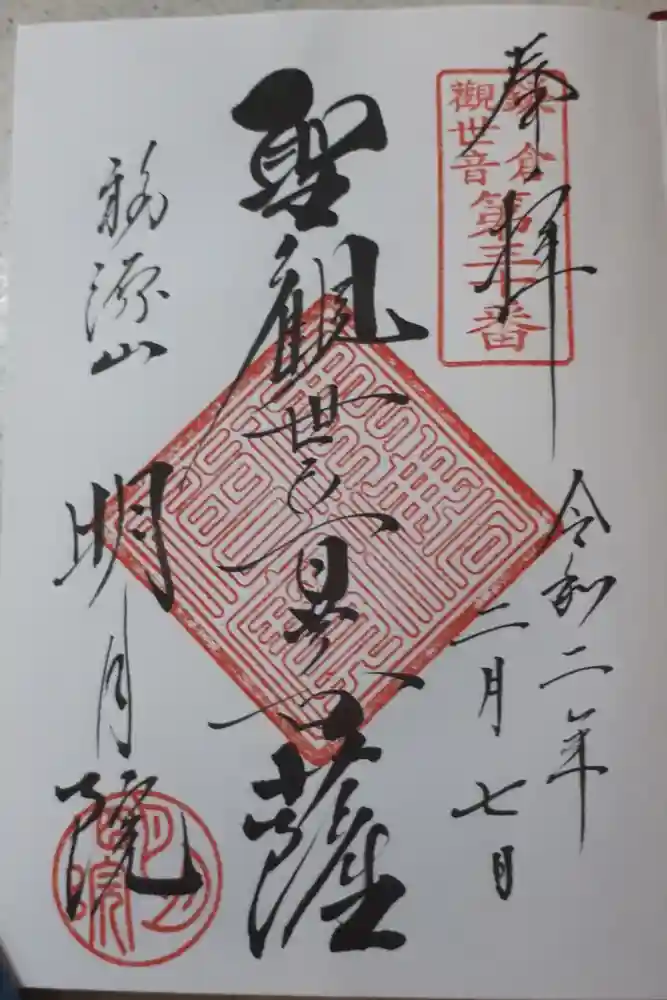 奉拝
鎌倉
觀世音
第三十番
令和二年
二月七日
聖観世音菩薩
福源山
明月院